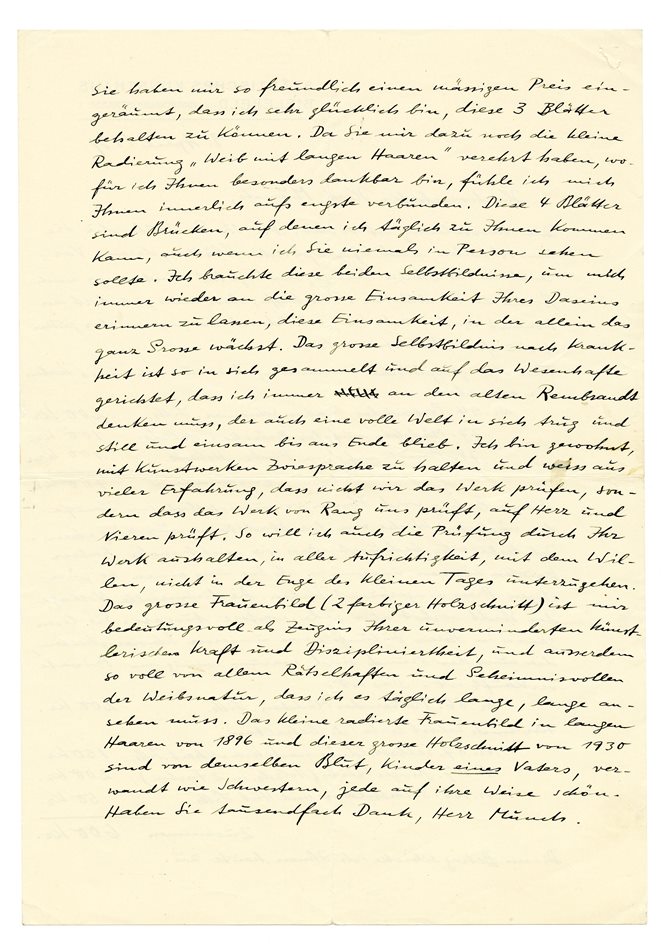 Sie haben mir so freundlich einen mässigen Preis ein-
geräumt, dass ich sehr glücklich bin, diese 3 Blätter
behalten zu können. Da Sie mir dazu noch die kleine
Radierung „Weib mit langen Haaren" verehrt haben, wo-
für ich Ihnen besonders dankbar bin, fühle ich mich
Ihnen innerlich aufs engste verbunden. Diese 4 Blätter
sind Brücken, auf denen ich täglich zu Ihnen kommen
kann, auch wenn ich Sie niemals in Person sehen
sollte. Ich brauchte diese beiden Selbstbildnisse, um mich
immer wieder an die grosse Einsamkeit Ihres Daseins
erinnern zu lassen, diese Einsamkeit, in der allein das
ganz Grosse wächst. Das grosse Selbstbildnis nach Krank-
heit ist so in sich gesammelt und auf das Wesenhafte
gerichtet, dass ich immer an den alten Rembrandt
denken muss, der auch eine volle Welt in sich trug und
still und einsam bis ans Ende blieb. Ich bin gewohnt,
mit Kunstwerken Zwiesprache zu halten und weiss aus
vieler Erfahrung, dass nicht wir das Werk prüfen, son-
dern dass das Werk von Rang uns prüft, auf Herz und
Nieren prüft. So will ich auch die Prüfung durch Ihr
Werk aushalten, in aller Aufrichtigkeit, mit dem Wil-
len, nicht in der Enge des kleinen Tages unterzugehen.
Das grosse Frauenbild (2 farbiger Holzschnitt) ist mir
bedeutungsvoll als Zeugnis Ihrer unverminderten künst-
lerischen Kraft und Diszipliniertheit, und ausserdem
so voll von allem Rätselhaften und Geheimnisvollen
der Weibsnatur, dass ich es täglich lange, lange an-
sehen muss. Das kleine radierte Frauenbild in langen
Haaren von 1896 und dieser grosse Holzschnitt von 1930
sind von demselben Blut, Kinder eines Vaters, ver-
wandt wie Schwestern, jede auf ihre Weise schön.
Haben Sie tausendfach Dank, Herr Munch.